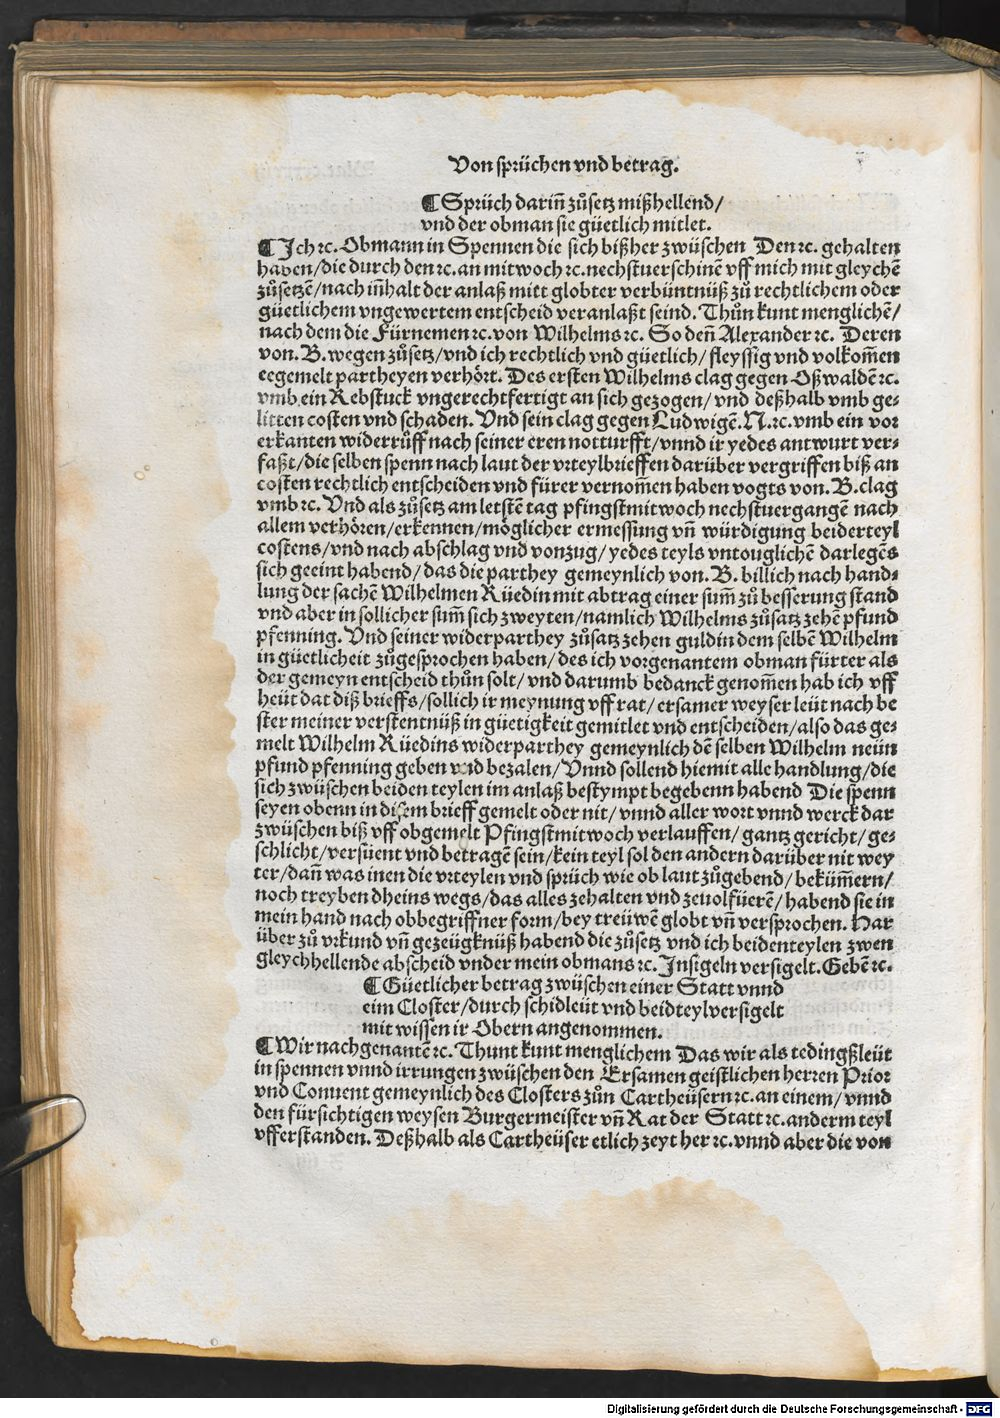 Von sprüchen vnd betrag.
¶ Sprüch dariñ zůsetz mißhellend/
vnd der obman sie güetlich mitlet.
¶ Ich ⁊c. Obmann in Spennen die sich bißher zwüschen Den ⁊c. gehalten
haben/die durch den ⁊c. an mitwoch ⁊c. nechstuerschinē vff mich mit gleychē
zůsetzē/nach iñhalt der anlaß mitt globter verbüntnüß zů rechtlichem oder
güetlichem vngewertem entscheid veranlaßt seind. Thůn kunt menglichē/
nach dem die Fürnemen ⁊c. von Wilhelms ⁊c. So deñ Alexander ⁊c. Deren
von. B. wegen zůsetz/vnd ich rechtlich vnd güetlich/fleyssig vnd volkom̃en
eegemelt partheyen verhört. Des ersten Wilhelms clag gegen Oßwaldē ⁊c.
vmb ein Rebstuck vngerechtfertigt an sich gezogen/vnd deßhalb vmb ge⸗
litten costen vnd schaden. Vnd sein clag gegen Ludwigē. N. ⁊c. vmb ein vor
erkanten widerrůff nach seiner eren notturfft/vnnd ir yedes antwurt ver⸗
faßt/die selben spenn nach laut der vrteylbrieffen darüber vergriffen biß an
costen rechtlich entscheiden vnd fürer vernom̃en haben vogts von. B. clag
vmb ⁊c. Vnd als zůsetz am letstē tag pfingstmitwoch nechstuergangē nach
allem verhören/erkennen/möglicher ermessung vñ würdigung beiderteyl
costens/vnd nach abschlag vnd vonzug/yedes teyls vntouglichē darlegēs
sich geeint habend/das die parthey gemeynlich von. B. billich nach hand⸗
lung der sachē Wilhelmen Rüedin mit abtrag einer sum̃ zů besserung stand
vnd aber in sollicher sum̃ sich zweyten/namlich Wilhelms zůsatz zehē pfund
pfenning. Vnd seiner widerparthey zůsatz zehen guldin dem selbē Wilhelm
in güetlicheit zůgesprochen haben/des ich vorgenantem obman fürter als
der gemeyn entscheid thůn solt/vnd darumb bedanck genom̃en hab ich vff
heüt dat diß brieffs/sollich ir meynung vff rat/ersamer weyser leüt nach be
ster meiner verstentnüß in güetigkeit gemitlet vnd entscheiden/also das ge⸗
melt Wilhelm Rüedins widerparthey gemeynlich dē selben Wilhelm neün
pfund pfenning geben vnd bezalen/Vnnd sollend hiemit alle handlung/die
sich zwüschen beiden teylen im anlaß bestympt begebenn habend Die spenn
seyen obenn in disem brieff gemelt oder nit/vnnd aller wort vnnd werck dar
zwüschen biß vff obgemelt Pfingstmitwoch verlauffen/gantz gericht/ge⸗
schlicht/versüent vnd betragē sein/kein teyl sol den andern darüber nit wey
ter/dañ was inen die vrteylen vnd sprüch wie ob laut zůgebend/beküm̃ern/
noch treyben dheins wegs/das alles zehalten vnd zeuolfüerē/habend sie in
mein hand nach obbegriffner form/bey treüwē globt vñ versprochen. Har
über zů vrkund vñ gezeügknüß habend die zůsetz vnd ich beidenteylen zwen
gleychhellende abscheid vnder mein obmans ⁊c. Insigeln versigelt. Gebē ⁊c.
¶ Güetlicher betrag zwüschen einer Statt vnnd
eim Closter/durch schidleüt vnd beidteylversigelt
mit wissen ir Obern angenommen.
¶ Wir nachgenantē ⁊c. Thunt kunt menglichem Das wir als tedingßleüt
in spennen vnnd irrungen zwüschen den Ersamen geistlichen herren Prior
vnd Conuent gemeynlich des Closters zůn Cartheüsern ⁊c. an einem/vnnd
den fürsichtigen weysen Burgermeister vñ Rat der Statt ⁊c. anderm teyl
vfferstanden. Deßhalb als Cartheüser etlich zeyt her ⁊c. vnnd aber die von
Digitalisierung gefördert durch die Deutsche Forschungsgemeinschaft - DFG